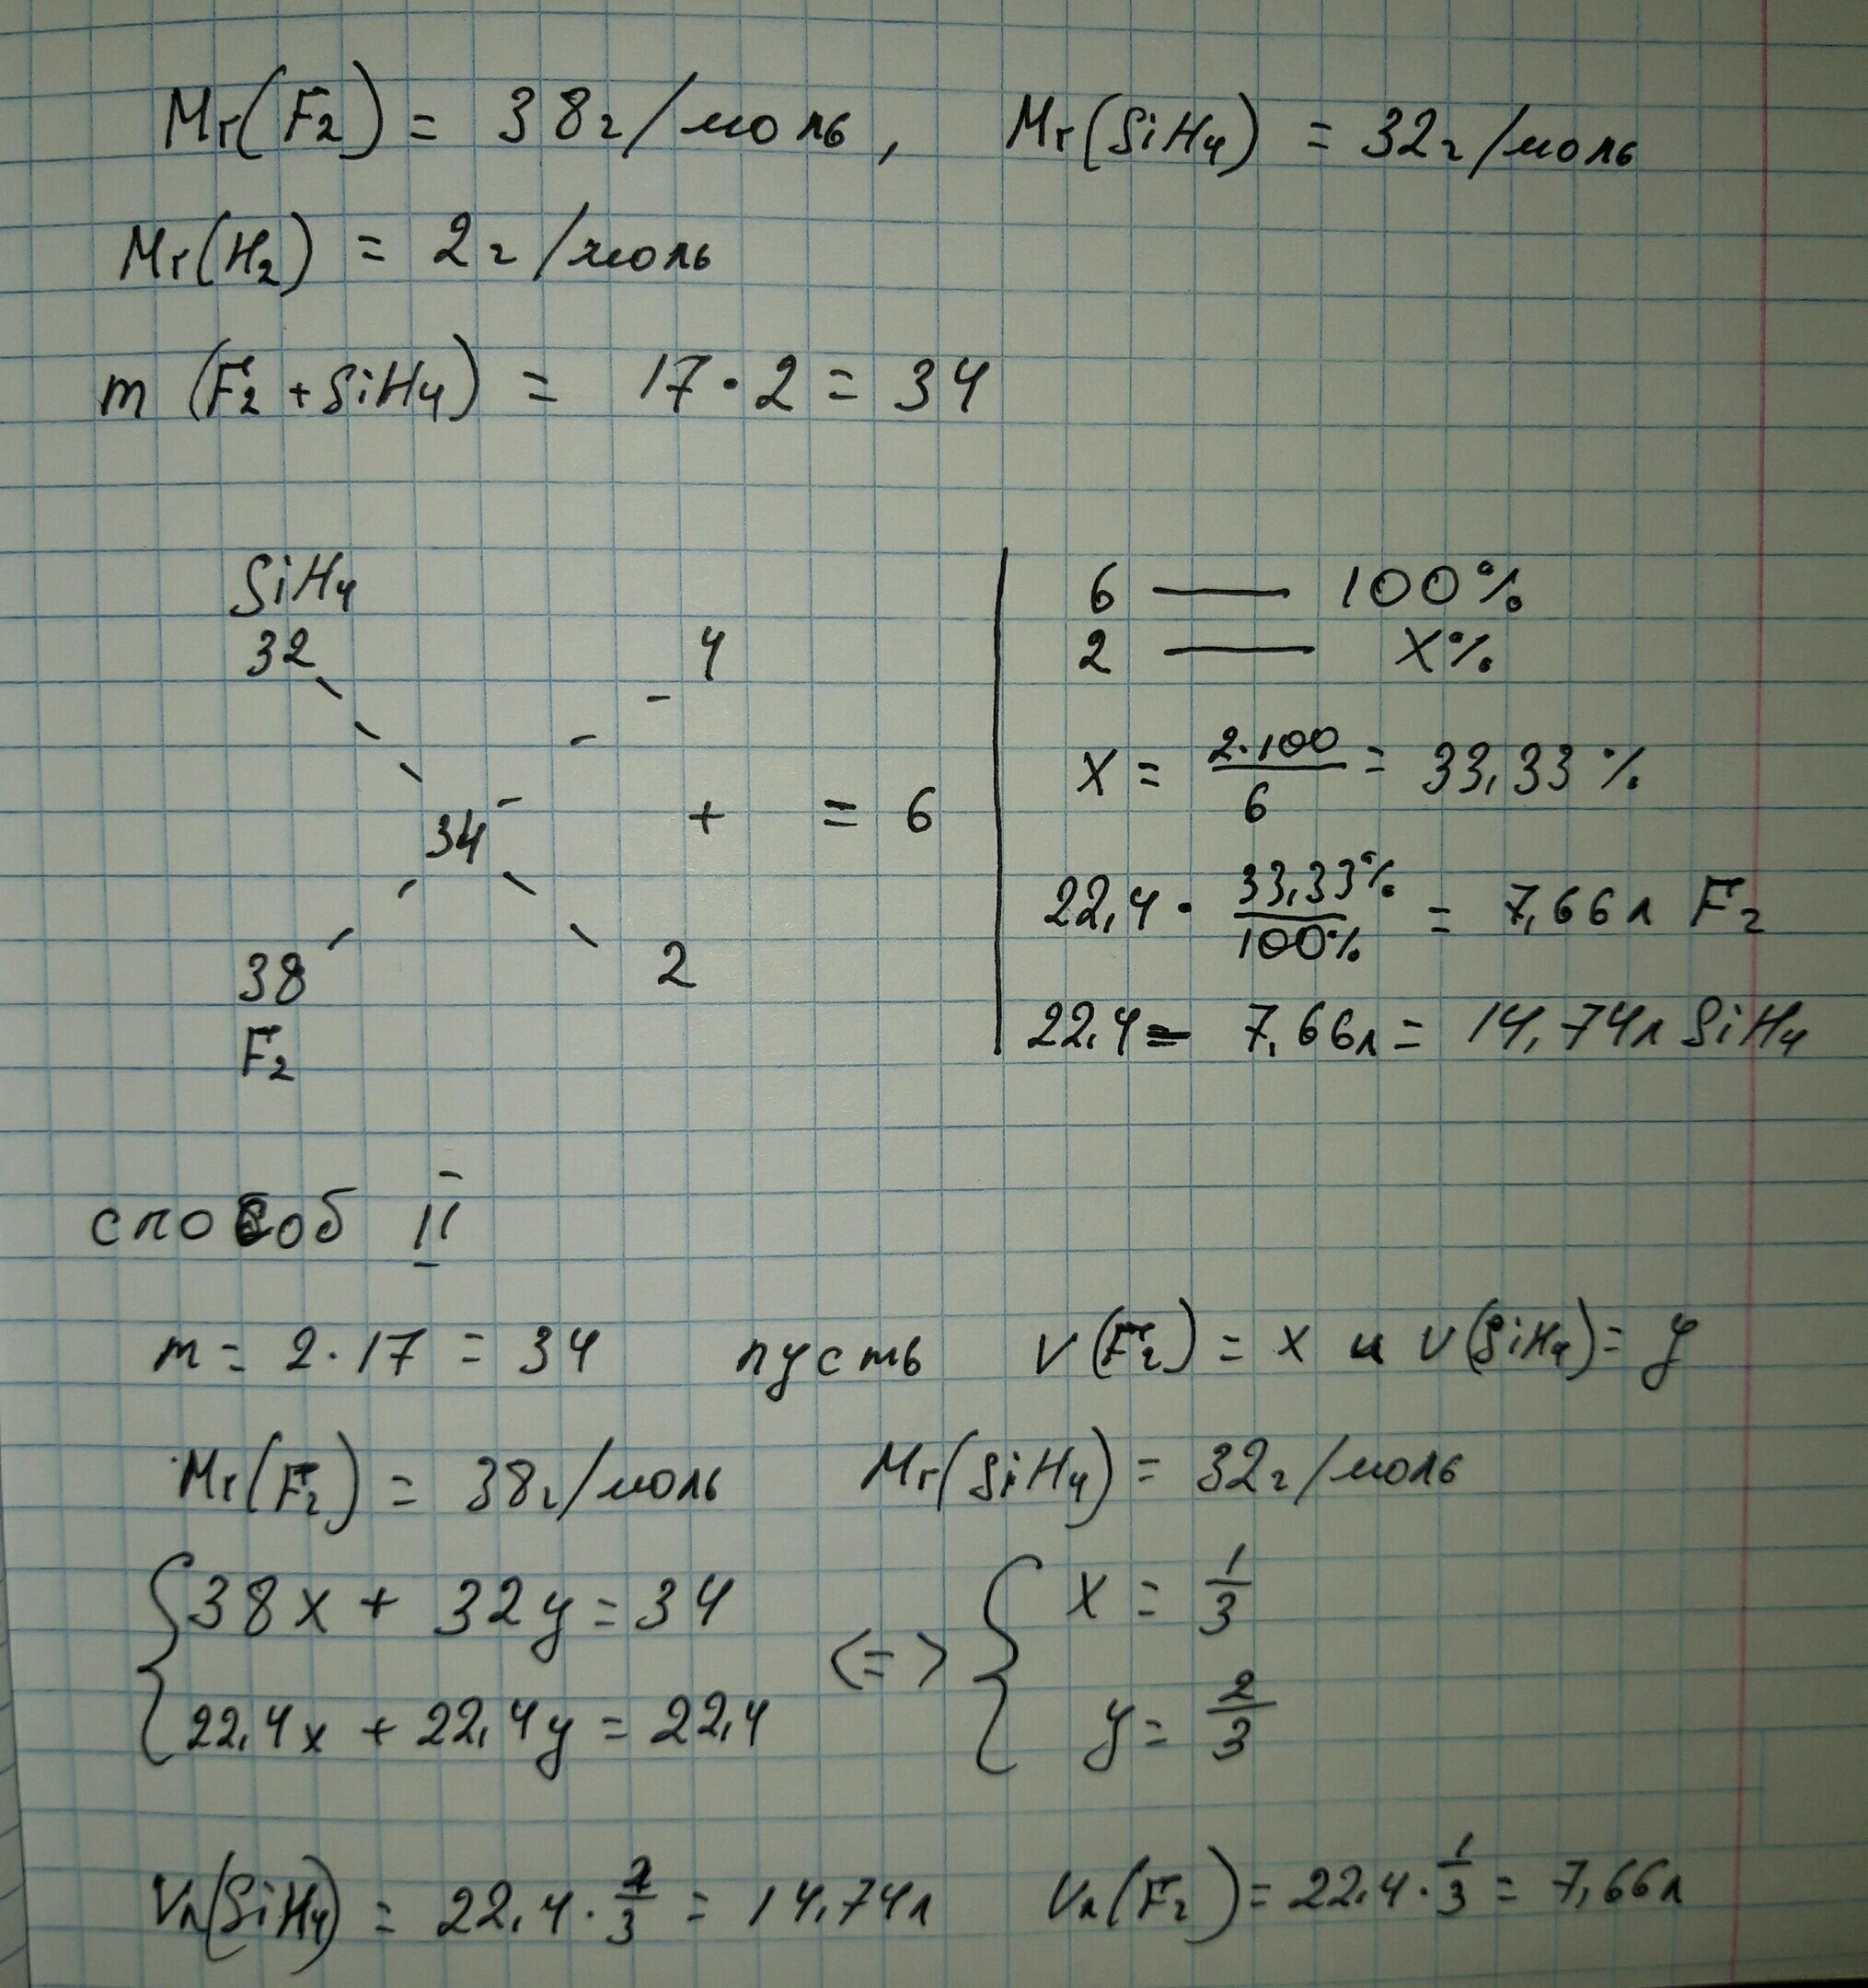 Mr(F₂) = 38г/моль, Mr(SiH₄) = 32г/моль
Mr(H₂) = 2г/моль
m (F₂ + SiH₄) = 17 · 2 = 34
SiH₄
32 4
34 + = 6
38 2
F₂
6 — 100%
2 — X%
X = 2·100/6 = 33,33 %
22,4 · 33,33%/100% = 7,66л F₂
22,4 - 7,66л = 14,74л SiH₄
способ II
m = 2·17 = 34 пусть ν(F₂) = x и ν(SiH₄) = y
Mr(F₂) = 38г/моль Mr(SiH₄) = 32г/моль
{38x + 32y = 34 <=> {x = 1/3
{22,4x + 22,4y = 22,4 {y = 2/3
Vл(SiH₄) = 22,4 · 2/3 = 14,74л Vл(F₂) = 22,4 · 1/3 = 7,66л